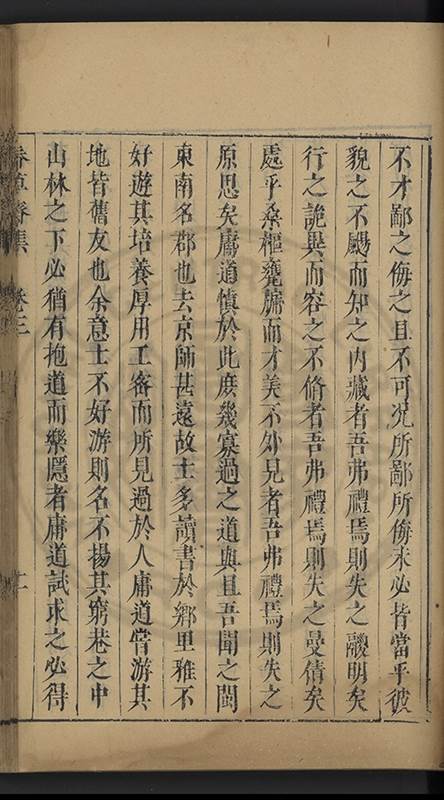 不才鄙之侮之且不可況所鄙所侮未必皆當乎彼
貌之不颺而知之內藏者吾弗禮焉則失之鬷明矣
行之詭異而容之不脩者吾弗禮焉則失之曼倩矣
處乎桑樞甕牖而才美不外見者吾弗禮焉則失之
原思矣庸道慎於此庶幾寡過之道與且吾聞之閩
東南名郡也去京師甚遠故士多讀書於鄉里雅不
好遊其培養厚用工客而所見過於人庸道嘗游其
地皆舊友也余意士不好游則名不揚其窮巷之中
山林之下必猶有抱道而樂隱者庸道試求之必得
春草齋集 卷三 十一